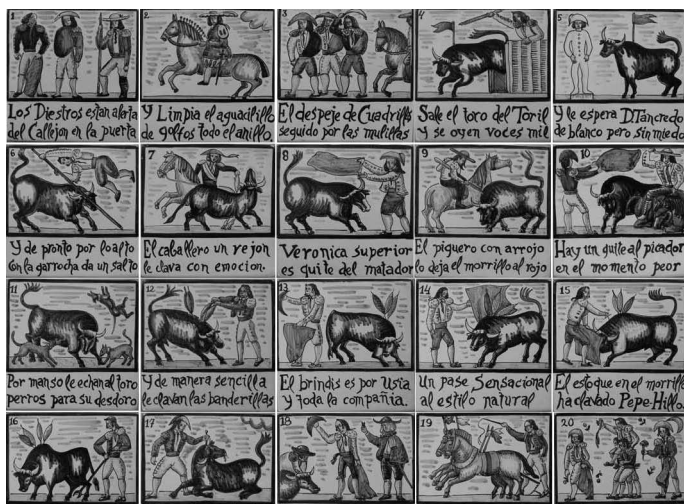 1
Los Diestros estan alerta
del Callejon en la puerta
2
Y Limpia el aguacilillo
de golfos todo el anillo.
3
El despeje de Cuadrillas
seguido por las mulillas
4
Sale el toro del Toril
y se oyen voces mil
5
Y le espera D.Tancredo
de blanco pero sin miedo
6
Y de pronto por lo alto
Con la garrocha da un salto
7
El caballero un rejon
le clava con emocion.
8
Veronica superior
es quite del matador
9
El piquero con arrojo
lo deja el morrillo al rojo
10
Hay un quite al picador
en el momento peor
11
Por manso le echan al toro
perros para su desdoro
12
Y de manera sencilla
le clavan las banderillas
13
El brindis es por Usia
y toda la compañia.
14
Un pase Sensacional
al estilo natural
15
El estoque en el morrillo
ha clavado Pepe-Hillo.
16
17
18
19
20